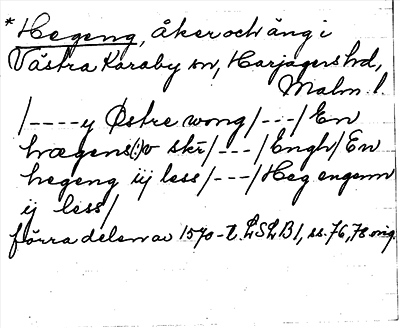 * Hegeng, åker och äng i
Västra Karaby sn, Harjagers hd,
Malm. l.
/----y Østre wong/---/En
hægens(:)v skr/---/Engh/En
hegeng iij less/---/Heg engenn
ij less/
förra delen av 1570-t. LSLB1, ss. 76, 78 orig.